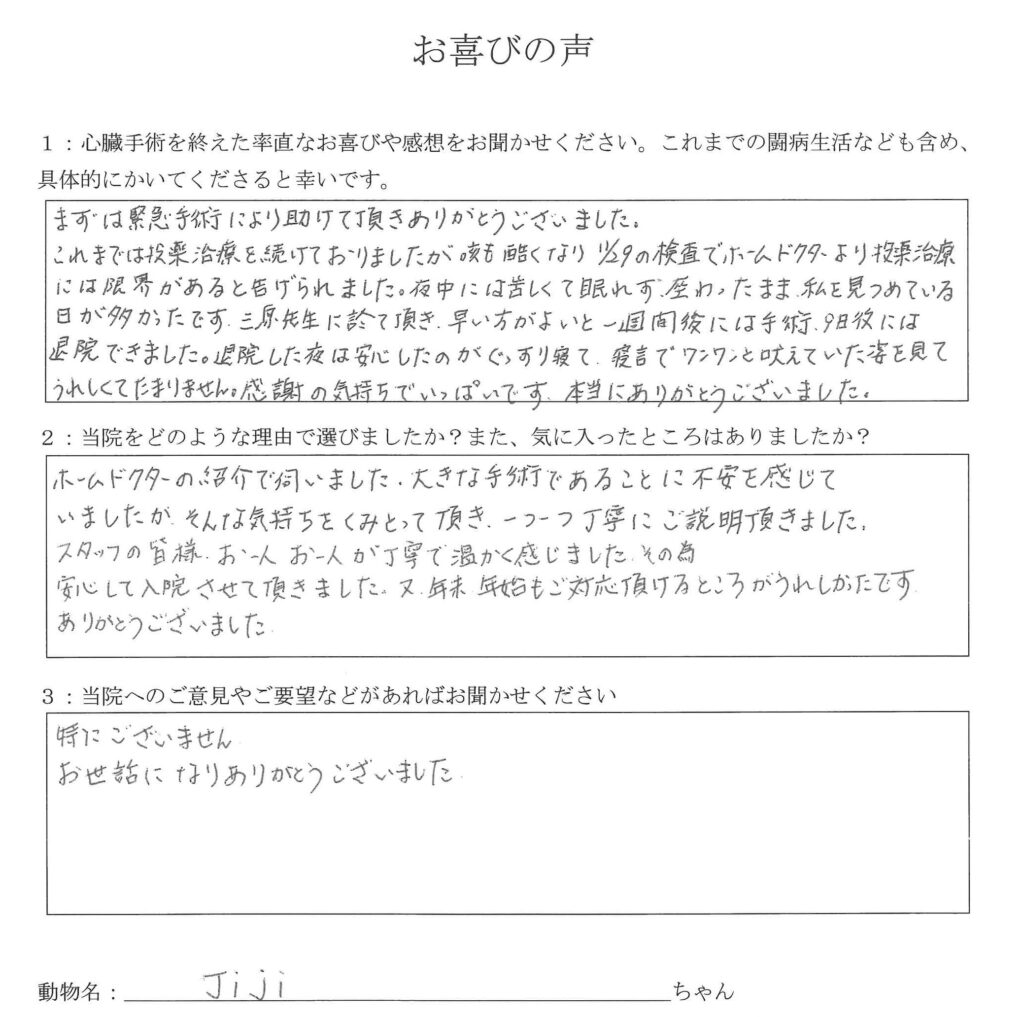 お喜びの声
1:心臓手術を終えた率直なお喜びや感想をお聞かせください。これまでの闘病生活なども含め、
具体的にかいてくださると幸いです。
まずは緊急手術により助けて頂きありがとうございました。
これまでは投薬治療を続けておりましたが咳も酷くなり 11/29の検査でホームドクターより投薬治療
には限界があると告げられました。夜中には苦しくて眠れず、座わったまま、私を見つめている
日が多かったです、三原先生に診て頂き、早い方がよいと一週間後には手術、9日後には
退院できました。退院した夜は安心したのがぐっすり寝て、寝言でワンワンと吠えていた姿を見て
うれしくてたまりません。感謝の気持ちでいっぱいです、本当にありがとうございました。
2:当院をどのような理由で選びましたか?また、気に入ったところはありましたか?
ホームドクターの紹介で伺いました、大きな手術であることに不安を感じて
いましたが、そんな気持ちをくみとって頂き、一つ一つ丁寧にご説明頂きました、
スタッフの皆様、お一人お一人が丁寧で温かく感じました、その為
安心して入院させて頂きました。又、年末年始もご対応頂けるところがうれしかたです
ありがとうございました
3:当院へのご意見やご要望などがあればお聞かせください
特にございません
お世話になりありがとうございました
動物名: Jiji ちゃん